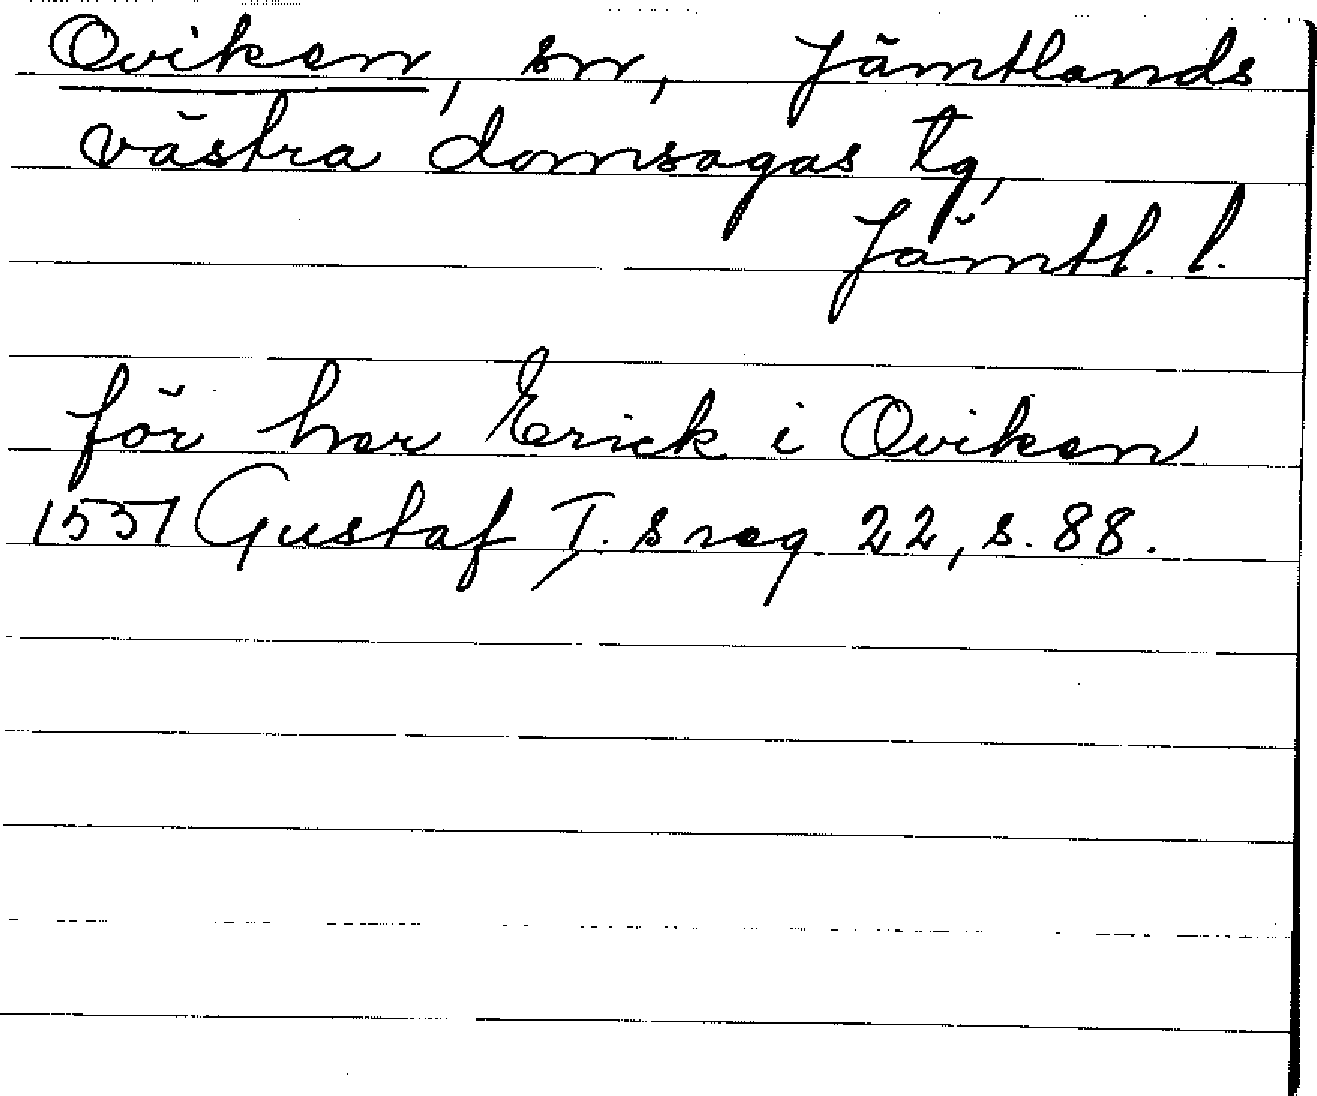 Oviken, sn, Jämtlands
västra domsagas tg,
Jämtl. l.
för her Erick i Oviken
1551 Gustaf I. s reg 22, s. 88.